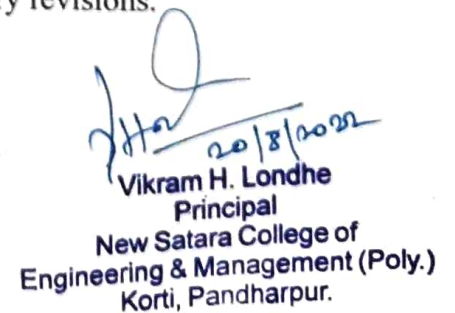 y revisions.
20/8/2022
Vikram H. Londhe
Principal
New Satara College of
Engineering & Management (Poly.)
Korti, Pandharpur.